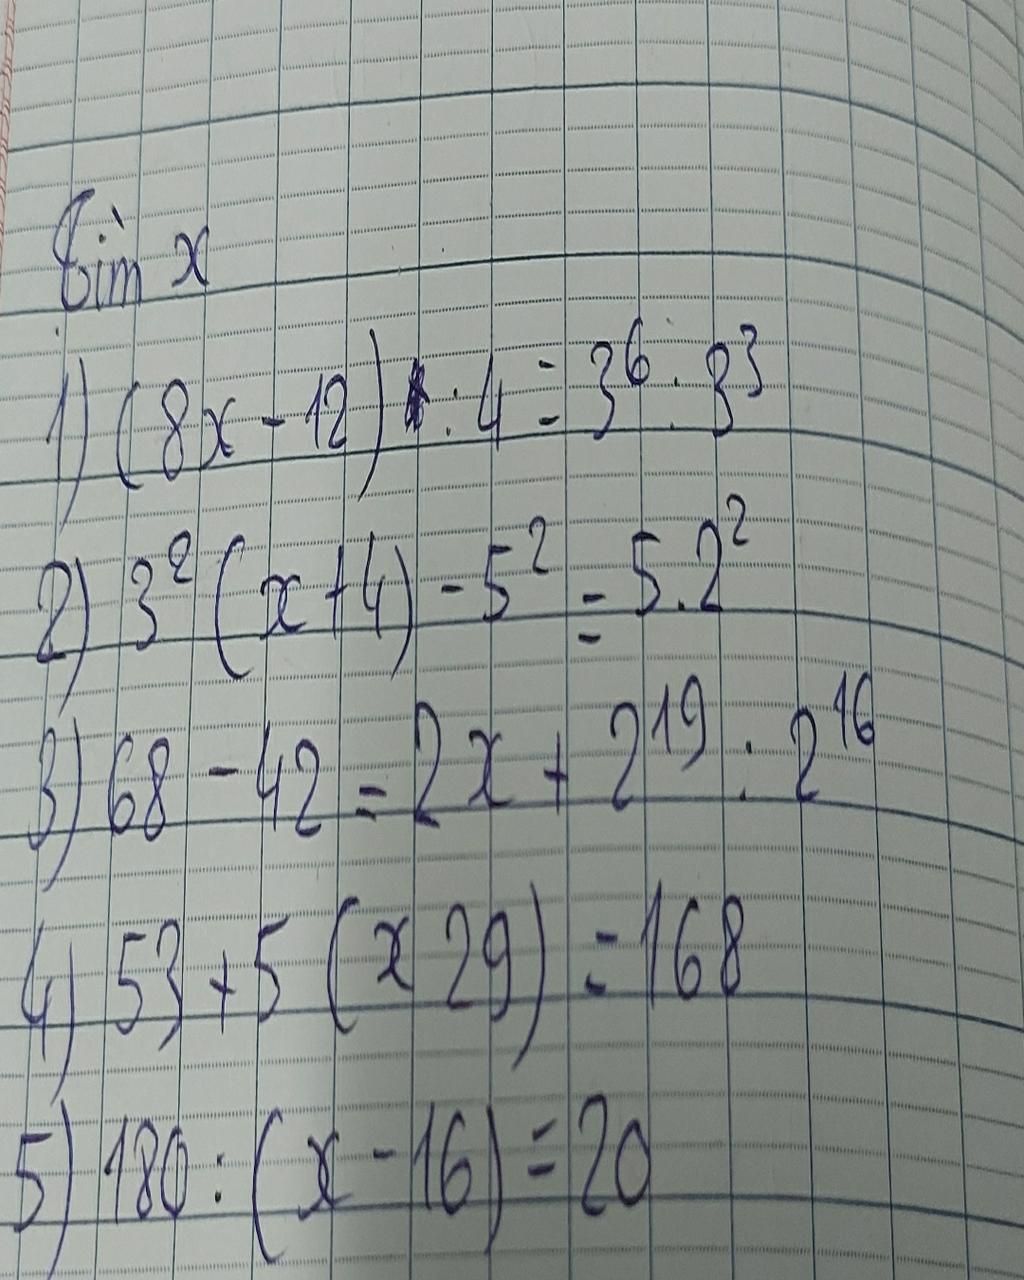 tìm x
1) (8x - 12) : 4 = 3⁶ . 3³
2) 3² (x + 4) - 5² = 5.2²
3) 68 - 42 = 2x + 2¹⁹ : 2¹⁶
4) 53 + 5 (x 29) = 168
5) 180 : (x - 16) = 20